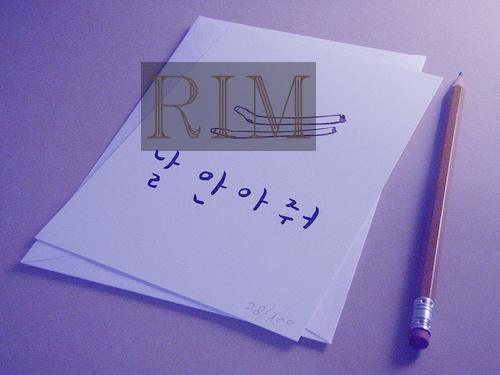 RIM
날 안아줘
28/100